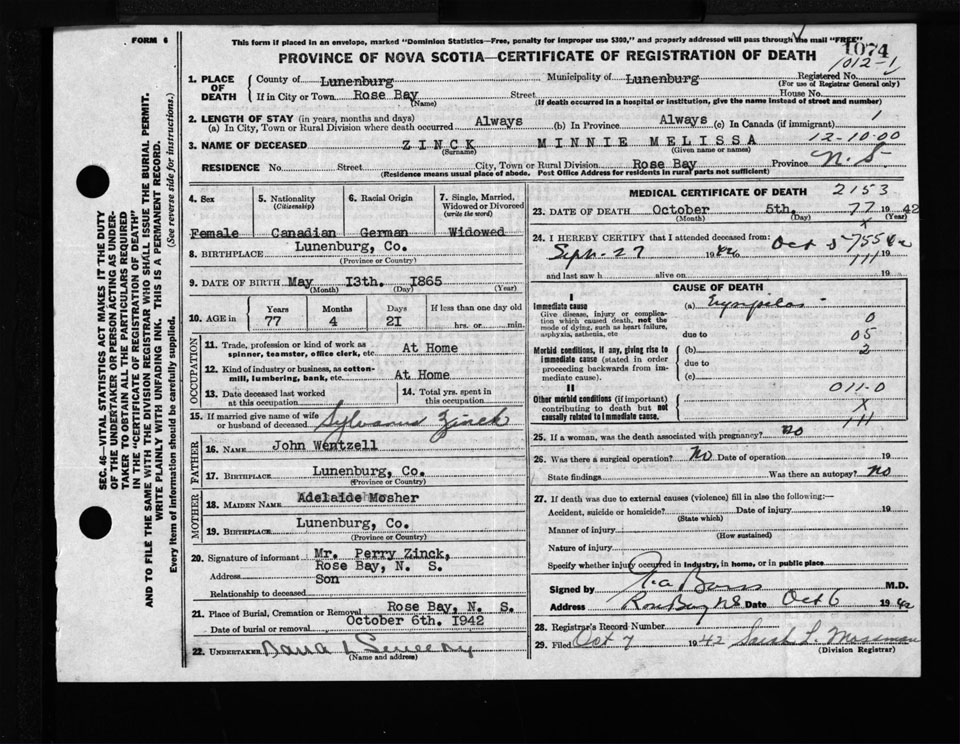 FORM 6
This form if placed in an envelope, marked "Dominion Statistics—Free, penalty for improper use $300," and properly addressed will pass through the mail "FREE"
PROVINCE OF NOVA SCOTIA—CERTIFICATE OF REGISTRATION OF DEATH
1074
1012-1
SEC. 46—VITAL STATISTICS ACT MAKES IT THE DUTY
OF THE UNDERTAKER OR PERSON ACTING AS UNDER-
TAKER TO OBTAIN ALL THE PARTICULARS REQUIRED
IN THE "CERTIFICATE OF REGISTRATION OF DEATH"
AND TO FILE THE SAME WITH THE DIVISION REGISTRAR WHO SHALL ISSUE THE BURIAL PERMIT.
WRITE PLAINLY WITH UNFADING INK. THIS IS A PERMANENT RECORD.
Every item of information should be carefully supplied. (See reverse side for instructions.)
1. PLACE OF DEATH
County of Lunenburg Municipality of Lunenburg Registered No.
(For use of Registrar General only)
If in City or Town Rose Bay Street House No.
(Name) (If death occurred in a hospital or institution, give the name instead of street and number)
2. LENGTH OF STAY (in years, months and days)
(a) In City, Town or Rural Division where death occurred Always (b) In Province Always (c) In Canada (if immigrant) 1
12-10-00
3. NAME OF DECEASED ZINCK MINNIE MELISSA
(Surname) (Given name or names)
RESIDENCE No. Street City, Town or Rural Division Rose Bay Province N.S.
(Residence means usual place of abode. Post Office Address for residents in rural parts not sufficient)
4. Sex Female
5. Nationality (Citizenship) Canadian
6. Racial Origin German
7. Single, Married, Widowed or Divorced (write the word) Widowed
8. BIRTHPLACE Lunenburg, Co.
(Province or Country)
9. DATE OF BIRTH May 13th. 1865
(Month) (Day) (Year)
10. AGE in Years 77 Months 4 Days 21 If less than one day old hrs. or min.
OCCUPATION
11. Trade, profession or kind of work as spinner, teamster, office clerk, etc. At Home
12. Kind of industry or business, as cotton-mill, lumbering, bank, etc. At Home
13. Date deceased last worked at this occupation
14. Total yrs. spent in this occupation
15. If married give name of wife or husband of deceased Sylvanus Zinck
FATHER
16. NAME John Wentzell
17. BIRTHPLACE Lunenburg, Co.
(Province or Country)
MOTHER
18. MAIDEN NAME Adelaide Mosher
19. BIRTHPLACE Lunenburg, Co.
(Province or Country)
20. Signature of informant Mr. Perry Zinck,
Address Rose Bay, N. S.
Relationship to deceased Son
21. Place of Burial, Cremation or Removal Rose Bay, N. S.
Date of burial or removal October 6th. 1942
22. UNDERTAKER
(Name and address)
MEDICAL CERTIFICATE OF DEATH 2153
23. DATE OF DEATH October 5th. 77 1942
(Month) (Day) (Year)
24. I HEREBY CERTIFY that I attended deceased from:
Sept-27 1942 Oct 5
and last saw h alive on 19
CAUSE OF DEATH
I
Immediate cause
Give disease, injury or complication which caused death, not the mode of dying, such as heart failure, asphyxia, asthenia, etc
(a) Erysipelas
0
due to 05
Morbid conditions, if any, giving rise to immediate cause (stated in order proceeding backwards from immediate cause).
(b) 2
due to
(c)
II
Other morbid conditions (if important) contributing to death but not causally related to immediate cause.
011-0
X
111
25. If a woman, was the death associated with pregnancy? no
26. Was there a surgical operation? No Date of operation 19
State findings Was there an autopsy? no
27. If death was due to external causes (violence) fill in also the following:—
Accident, suicide or homicide? Date of injury 19
(State which)
Manner of injury
(How sustained)
Nature of injury
Specify whether injury occurred in industry, in home, or in public place
Signed by M.D.
Address Rose Bay NS Date Oct 6 1942
28. Registrar's Record Number
29. Filed Oct 7 1942 Sarah L. Mossman
(Division Registrar)